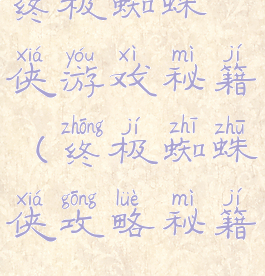 终极蜘蛛
xiá yóu xì mì jí
侠游戏秘籍
zhōng jí zhī zhū
(终极蜘蛛
xiá gōng lüè mì jí
侠攻略秘籍